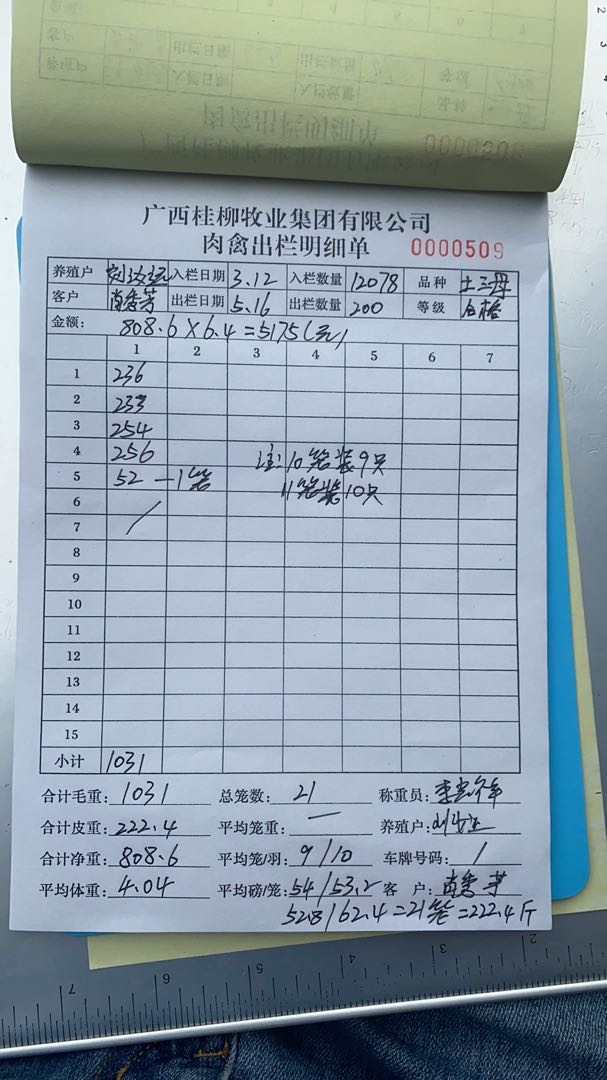 广西桂柳牧业集团有限公司
肉禽出栏明细单 0000509
养殖户 入栏日期 3.12 入栏数量 12078 品种 土三丹
客户 肖秀芳 出栏日期 5.16 出栏数量 200 等级 合格
金额： 808.6×6.4=5175(元)
1 2 3 4 5 6 7
1 236
2 233
3 254
4 256 注：10笼装9只
5 52 —1笼 11笼装10只
6
7 /
8
9
10
11
12
13
14
15
小计 1031
合计毛重：1031 总笼数：21 称重员：
合计皮重：222.4 平均笼重：— 养殖户：
合计净重：808.6 平均笼/羽：9/10 车牌号码：/
平均体重：4.04 平均磅/笼：54/53.2 客 户：肖秀芳
52.8/62.4=21笼=222.4斤